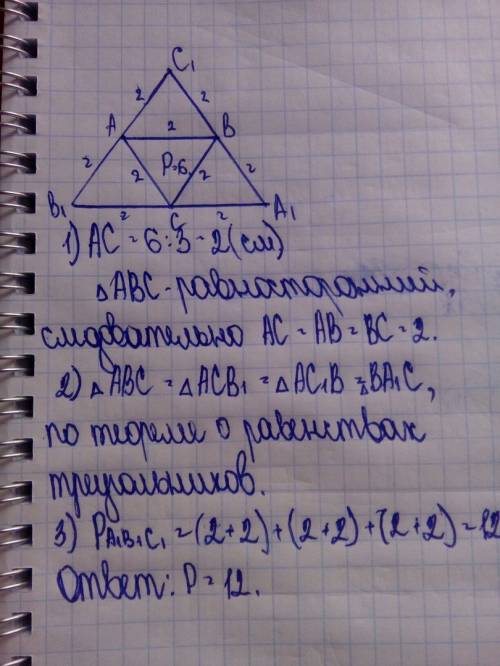 C₁
2 2
A 2 B
2 2 P=6 2 2
B₁ 2 C 2 A₁
1) AC = 6:3 = 2 (см)
△ABC - равносторонний,
следвательно AC = AB = BC = 2.
2) △ABC = △ACB₁ = △AC₁B = △BA₁C,
по теореме о равенствах
треугольников.
3) PA₁B₁C₁ = (2+2)+(2+2)+(2+2)=12
Ответ: P = 12.